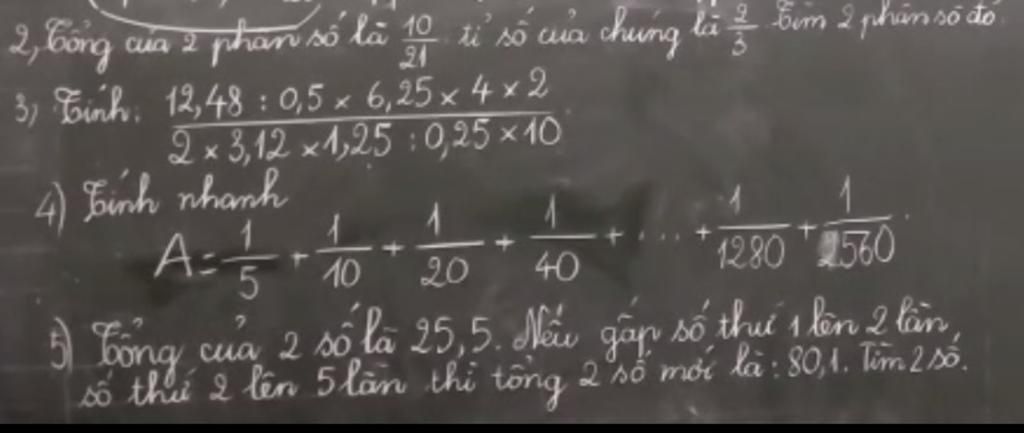 2, Tổng của 2 phân số là 10/21 tỉ số của chúng là 2/3. Tìm 2 phân số đó
3, Tính: 12,48 : 0,5 × 6,25 × 4 × 2
2 × 3,12 × 1,25 : 0,25 × 10
4) Tính nhanh
A = 1/5 + 1/10 + 1/20 + 1/40 + ... + 1/1280 + 1/2560.
5) Tổng của 2 số là 25,5. Nếu gấp số thứ 1 lên 2 lần,
số thứ 2 lên 5 lần thì tổng 2 số mới là: 80,1. Tìm 2 số.